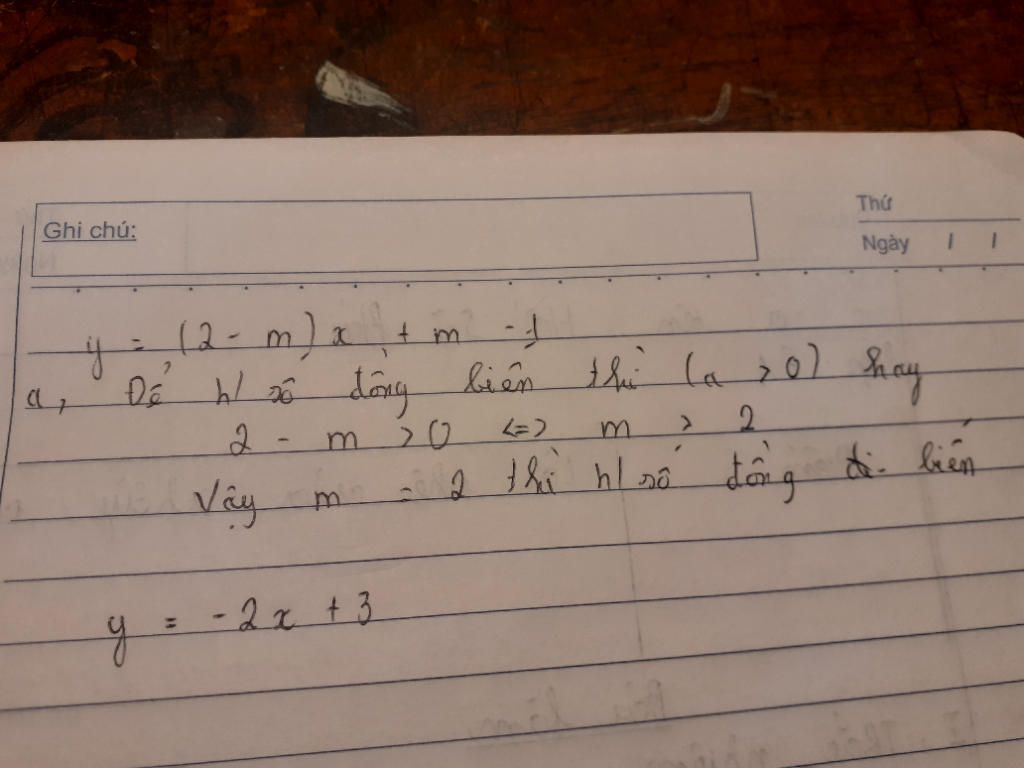 Ghi chú:
Thứ
Ngày / /
y = (2 - m) x + m - 1
a, Để h/ số đồng biến thì (a > 0) hay
2 - m > 0 <=> m > 2
Vậy m = 2 thì h/ số đồng biến
y = -2x + 3